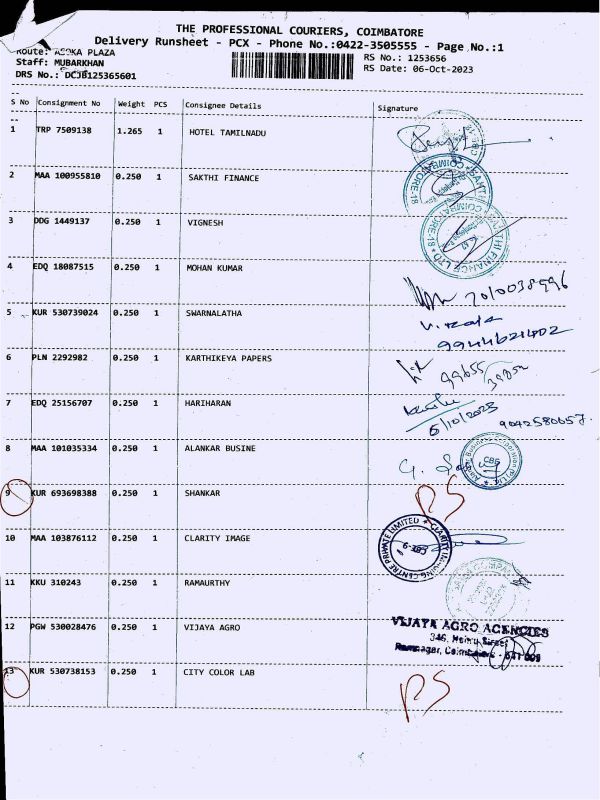 THE PROFESSIONAL COURIERS, COIMBATORE
Delivery Runsheet - PCX - Phone No.:0422-3505555 - Page No.:1
Route: ASOKA PLAZA
Staff: MUBARKHAN
DRS No.: DCJB125365601
RS No.: 1253656
RS Date: 06-Oct-2023
S No Consignment No Weight PCS Consignee Details Signature
1 TRP 7509138 1.265 1 HOTEL TAMILNADU
2 MAA 100955810 0.250 1 SAKTHI FINANCE
COIMBATORE-18
3 DDG 1449137 0.250 1 VIGNESH
COIMBATORE-18
FINANCE LTD
4 EDQ 18087515 0.250 1 MOHAN KUMAR
7010038996
5 KUR 530739024 0.250 1 SWARNALATHA
9944621402
6 PLN 2292982 0.250 1 KARTHIKEYA PAPERS
99655
39852
7 EDQ 25156707 0.250 1 HARIHARAN
6/10/2023
9042580657
8 MAA 101035334 0.250 1 ALANKAR BUSINE
CBE
9 KUR 693698388 0.250 1 SHANKAR
RS
10 MAA 103876112 0.250 1 CLARITY IMAGE
CENTRE PRIVATE LIMITED ★ CLARITY
11 KKU 310243 0.250 1 RAMAURTHY
12 PGW 530028476 0.250 1 VIJAYA AGRO
VIJAYA AGRO AGENCIES
346,
Ramnagar, Coimbatore - 641 009
13 KUR 530738153 0.250 1 CITY COLOR LAB
RS